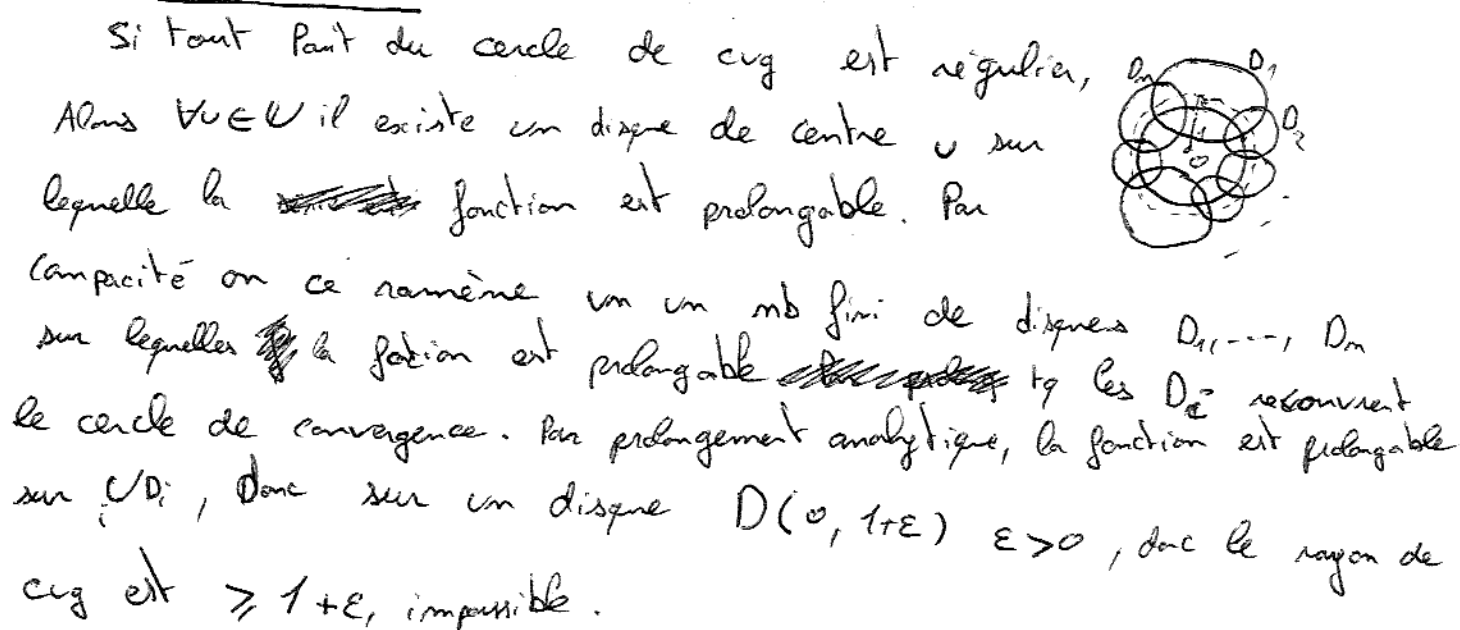 Si tout Point du cercle de cvg est régulier,
Alors ∀u∈U il existe un disque de centre u sur
lequelle la fonction est prolongable. Par
Compacité on ce ramène un un nb fini de disques D₁,---, Dₙ
sur lequelles la fotion est prolongable tq les Dᵢ recouvrent
le cercle de convergence. Par prolongement analytique, la fonction est prolongable
sur ∪Dᵢ, Donc sur un disque D(0, 1+ε) ε>0, donc le rayon de
i
cvg est ⩾ 1+ε, impossible.
Dₙ D₁
D₂
1
0